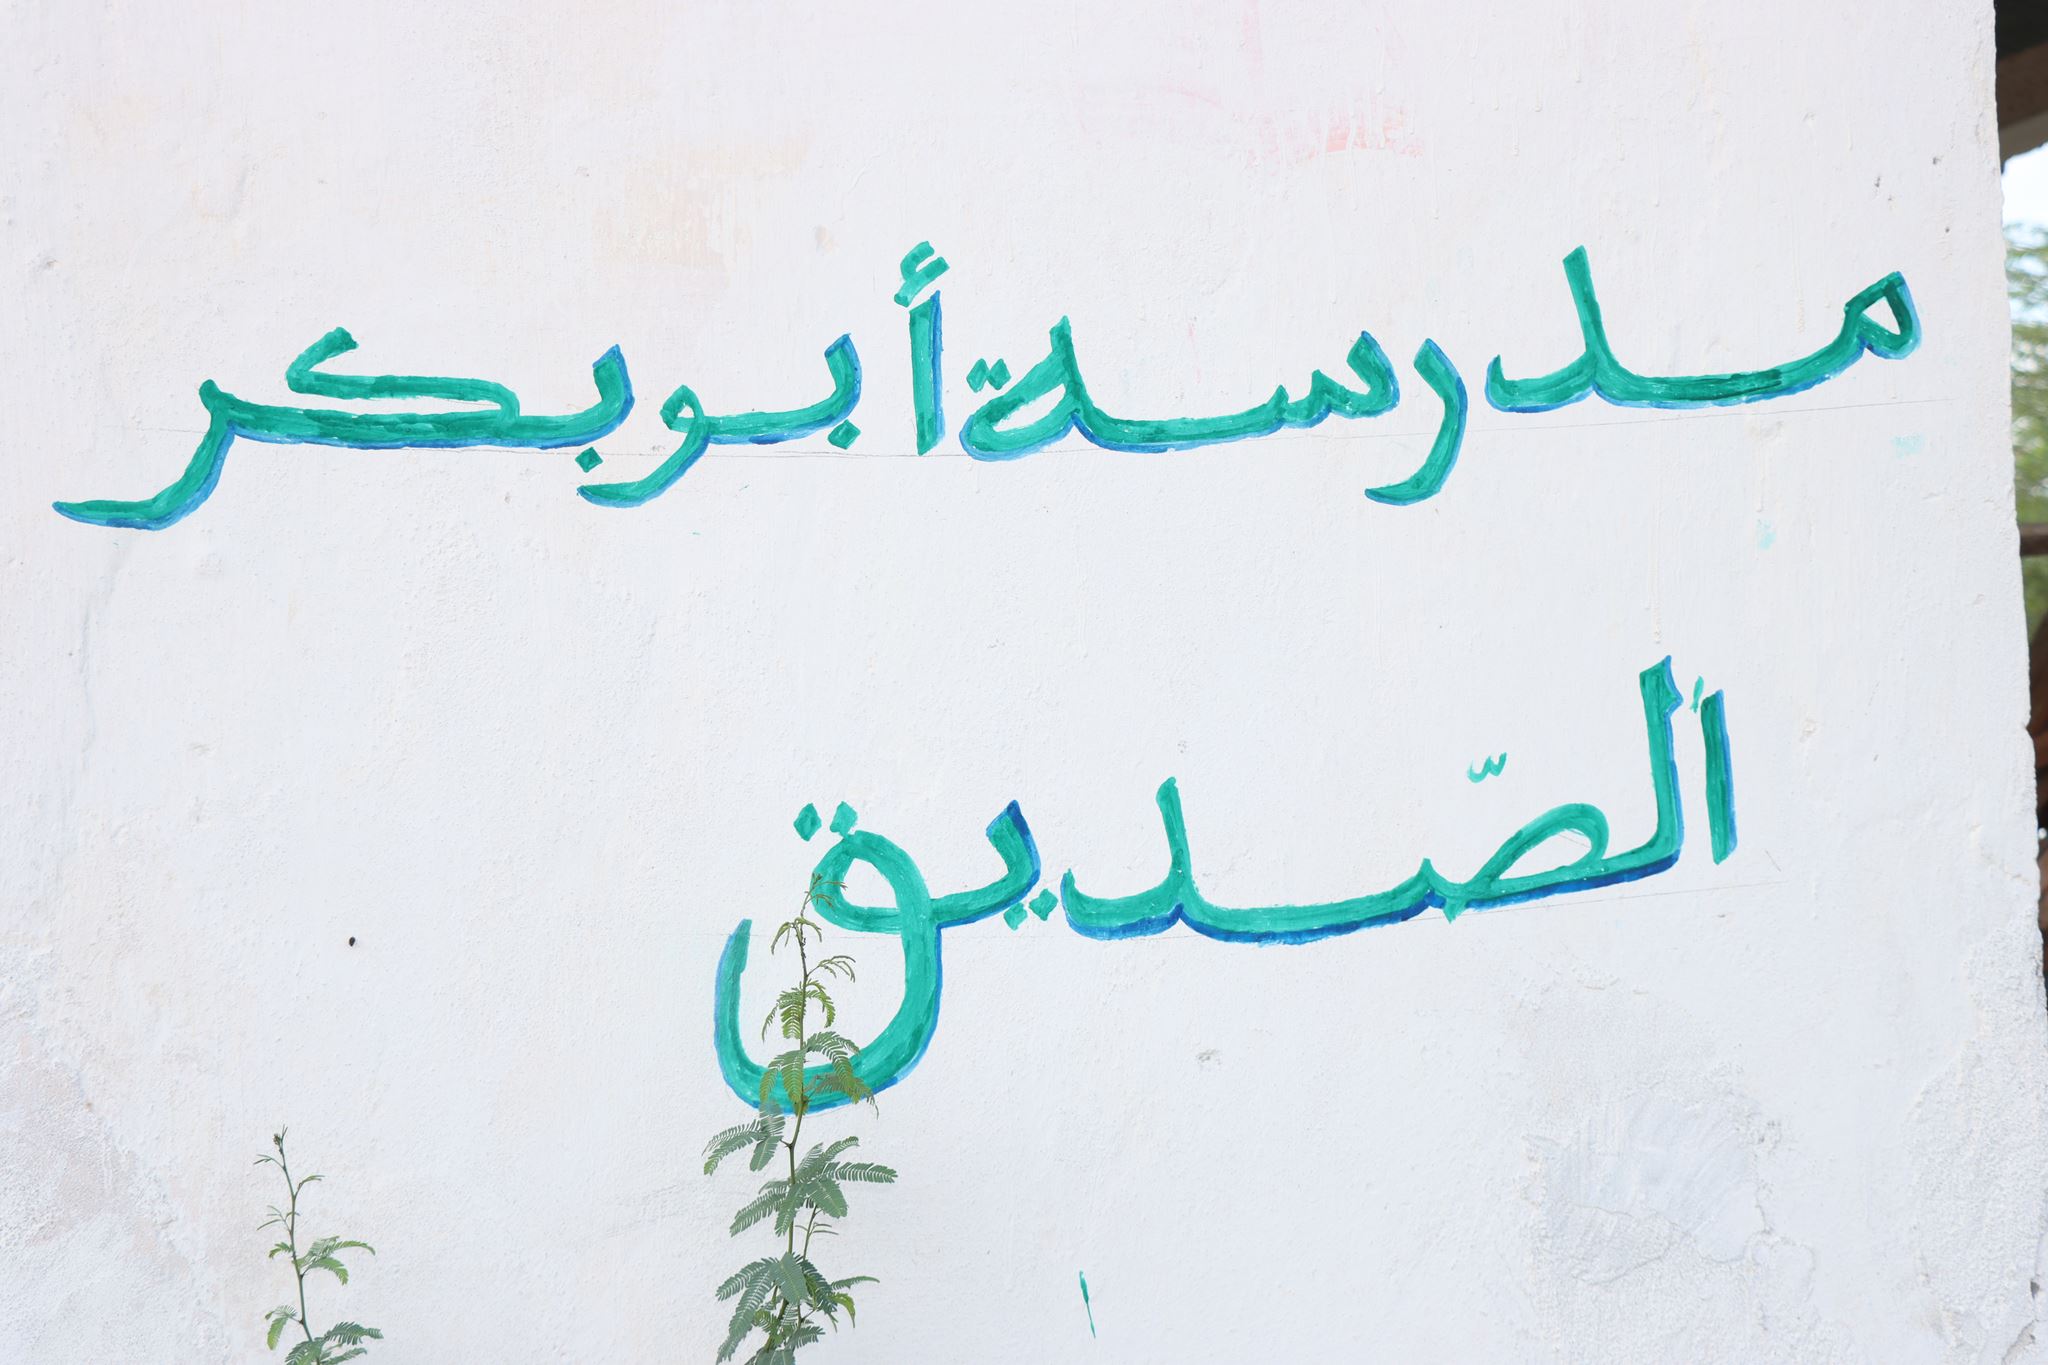 مدرسة أبو بكر
ألصّديق